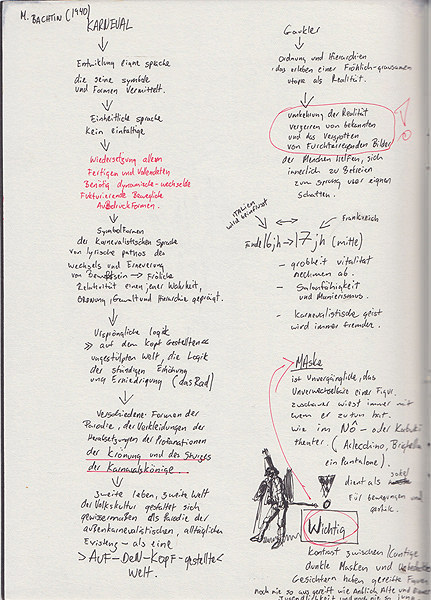 M. BACHTIN (1940)
KARNEVAL
Entwicklung eigne sprache
die seine symbole
und Formen vermittelt.
Einheitliche sprache
kein einfaltige
Wiedersetzung allem
Fertigen und Vollendeten
Benötig dynamische-wechselde
Fukturierende Bewegliche
AusdruckFormen.
SymbolFormen
der Karnevalistischen Sprache
von lyrische pathos des
wechsels und Erneuerung
von → Fröliche
Relativität einen jener Wahrheit,
Ordnung, Gewalt und Hierarchie geprägt.
Urspüngliche logik
» auf dem Kopf Gestellten «
umgestülpten Welt, die Logik
der ständigen Erhöhung
und Erniedrigung (das Rad)
Verschiedene Formen der
Parodie, der Verkleidungen der
Herabsetzungen der Profanationen
der Krönung und des Sturzes
der Karnevalskönige
zweite leben, zweite Welt
der Volkskultur gestaltet sich
gewissermaßen als Parodie der
außenkarnevalistischen, alltäglichen
Existenz – als eine
> AUF-DEN-KOPF-gestellte <
WELT.
Gaukler
Ordnung und Hierarchien
das erleben einer Fröhlich-grausamen
utopie als Realität.
umkehrung der Realität
verzerren von bekannten
und das Verspotten
von Furchterregenden Bilder
der Menschen helfen, sich
innerlich zu Befreien
zum sprung über eignen
Schatten.
ITALIEN
wird beeinflusst
Frankreich
Ende 16 jh → 17 jh (mitte)
- grobheit vitalität
nehmen ab.
- Salonfähigkeit
und Manierismus.
- Karnevalistische geist
wird immer fremder.
MAske
ist unvergängliche, das
Unverwechselbare einer Figur.
zuschauer wiest immer mit
wem er zu tun hat.
wie im NÔ – oder Kabuki
theater. (Arlecchino, Brighella
ein Pantalone).
dient als
für bewegungen und
gestik.
!
Wichtig
Kontrast zwischen
dunkle Masken und
Gesichtern haben gereifte Figuren
noch nie so ausgereift wie Anblich, Alte und
Jugendlichkeit und noch nie so